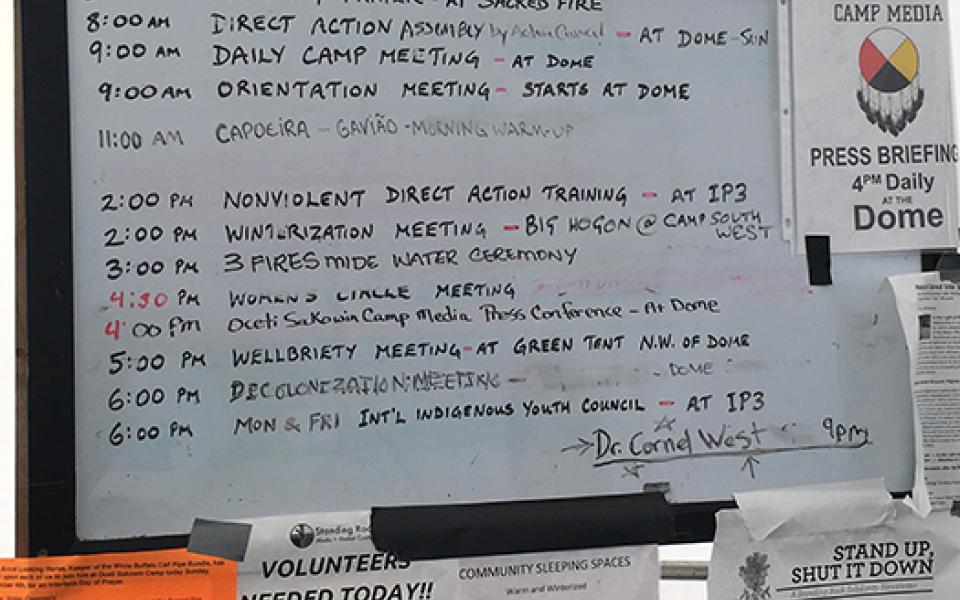 AT SACRED FIRE
8:00 AM DIRECT ACTION ASSEMBLY by Action Council - AT DOME-SUN
9:00 AM DAILY CAMP MEETING - AT DOME
9:00 AM ORIENTATION MEETING - STARTS AT DOME
11:00 AM CAPOEIRA - GAVIÃO - MORNING WARM-UP
2:00 PM NONVIOLENT DIRECT ACTION TRAINING - AT IP3
2:00 PM WINTERIZATION MEETING - BIG HOGON @ CAMP SOUTH
WEST
3:00 PM 3 FIRES MIDE WATER CEREMONY
4:30 PM WOMEN'S CIRCLE MEETING
4:00 Pm Oceti Sakowin Camp Media Press Conference - At Dome
5:00 PM WELLBRIETY MEETING - AT GREEN TENT N.W. OF DOME
6:00 PM DECOLONIZATION MEETING - - DOME
6:00 PM MON & FRI INT'L INDIGENOUS YOUTH COUNCIL - AT IP3
→ Dr. Cornel West 9pm
CAMP MEDIA
PRESS BRIEFING
4PM Daily
AT THE
Dome
Standing Roc
VOLUNTEERS
NEEDED TODAY!!
COMMUNITY SLEEPING SPACES
Warm and Winterized
STAND UP,
SHUT IT DOWN
A Standing Rock Solidarity Newsletter